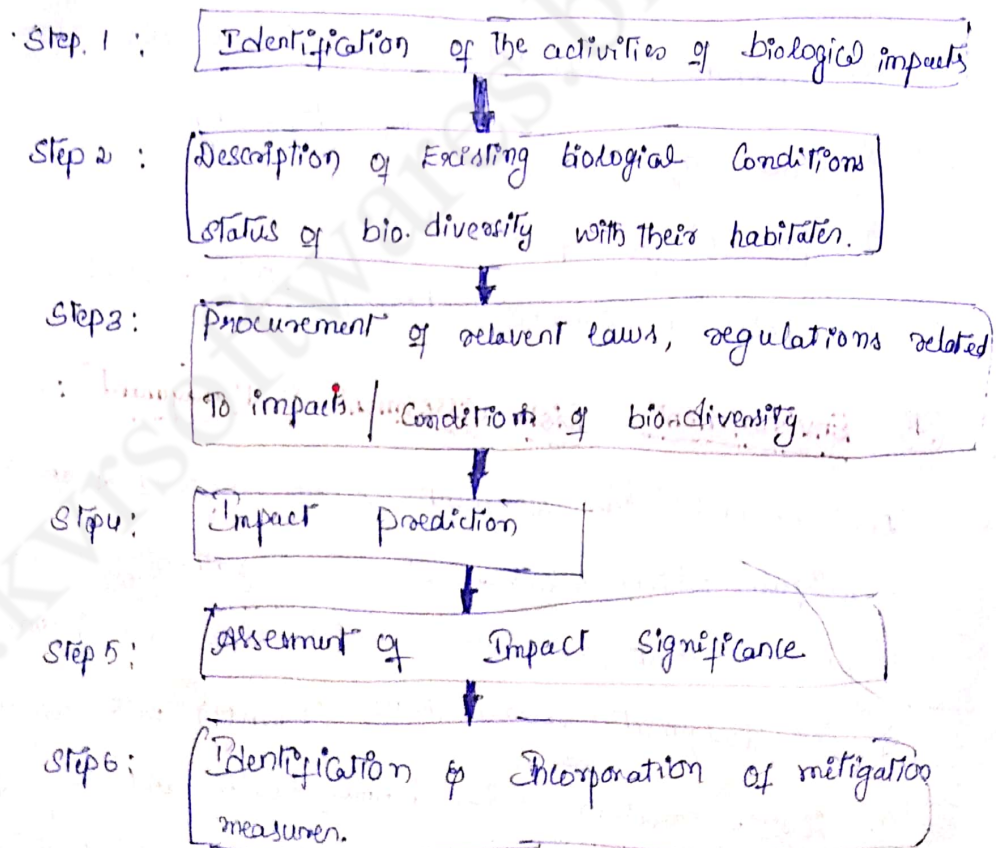 Step. 1 : Identification of the activities of biological impacts
Step 2 : Description of Existing biological Conditions
status of bio. diversity with their habitates.
Step3 : Procurement of relavent laws, regulations related
: To impacts. / Conditions of bio.diversity
Step4: Impact prediction
Step 5: Assesment of Impact Significance
Step6: Identification & Incorporation of mitigation
measures.
kvrsoftwares.b